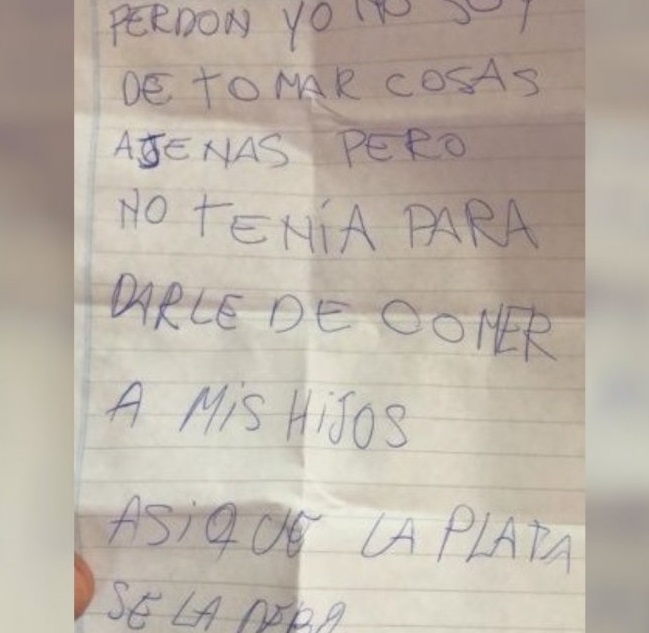 PERDON YO NO SOY
DE TOMAR COSAS
AJENAS PERO
NO TENÍA PARA
DARLE DE COMER
A MiS HiJOS
ASiQUE LA PLATA
SE LA